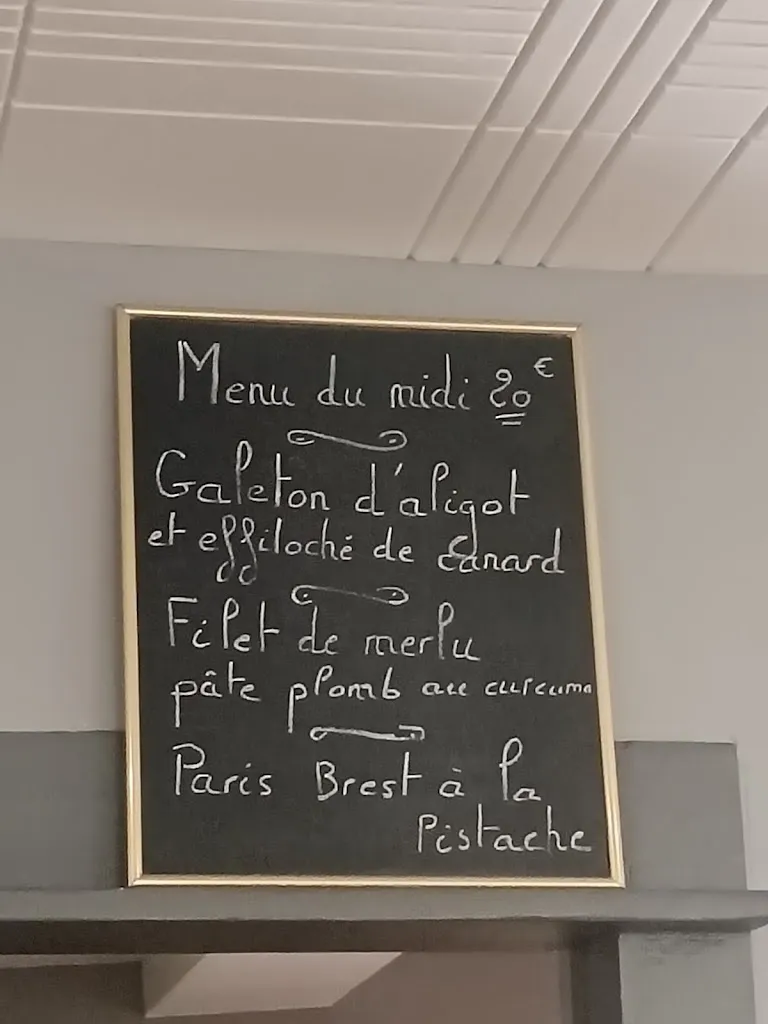 Menu du midi 20€
Galeton d'aligot
et effiloché de canard
Filet de merlu
pâte plomb au curcuma
Paris Brest à la
Pistache